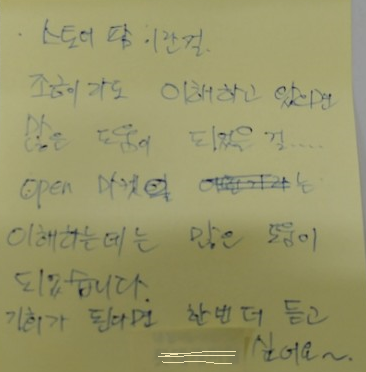 · 스토어 팜 이란걸.
조금이라도 이해하고 있으면
많은 도움이 되었을 걸.....
open 마켓을 는
이해하는데는 많은 도움이
되었습니다.
기회가 된다면 한번 더 듣고
싶어요~.